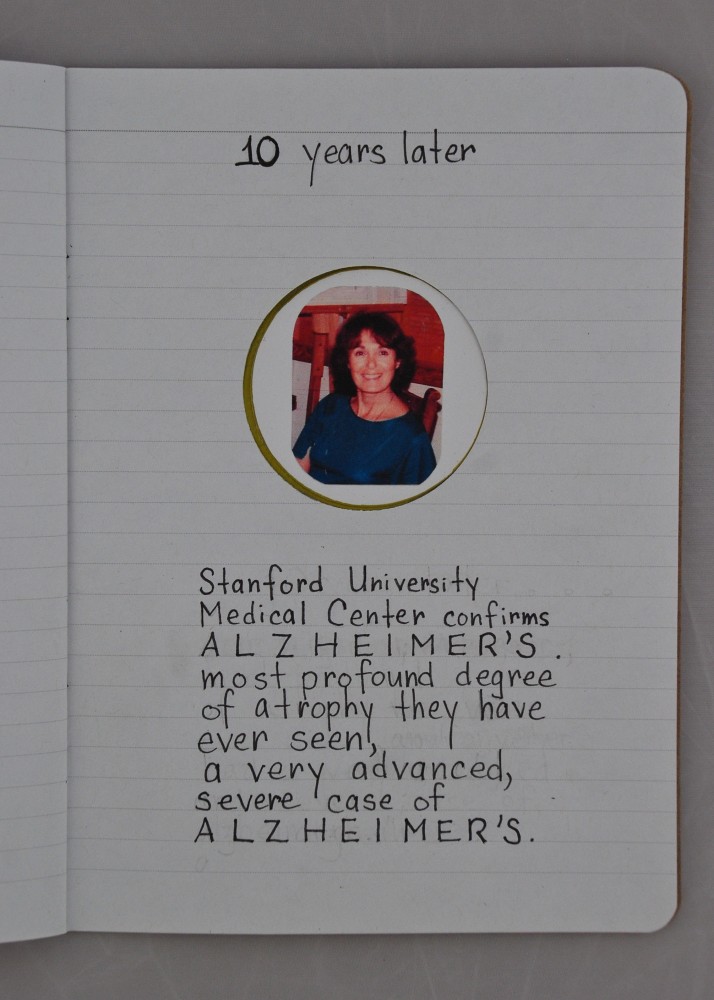 10 years later
Stanford University
Medical Center confirms
ALZHEIMER'S.
most profound degree
of atrophy they have
ever seen,
a very advanced,
severe case of
ALZHEIMER'S.